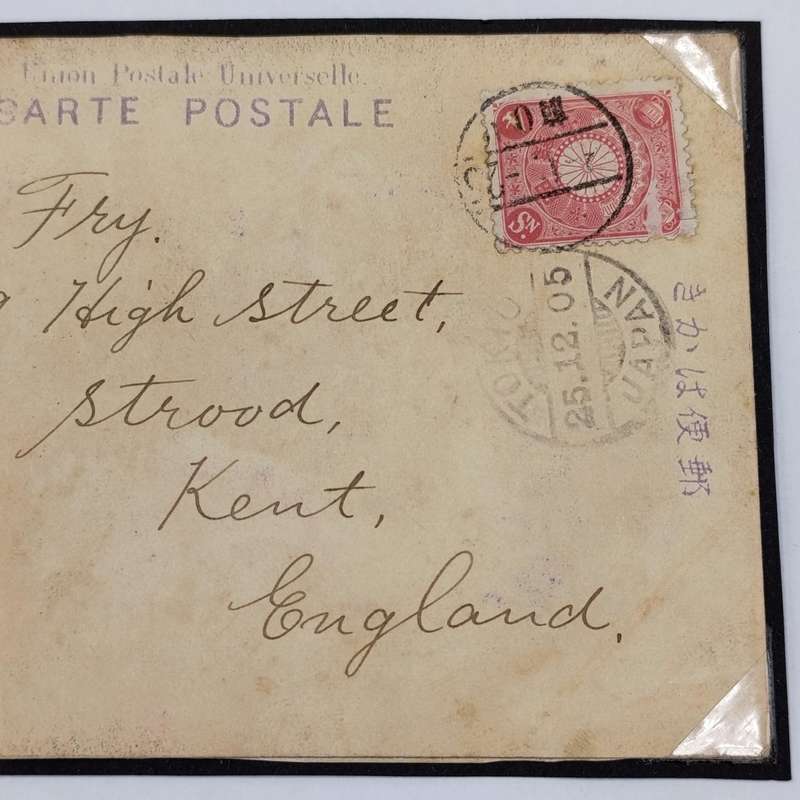 Union Postale Universelle.
CARTE POSTALE
Fry.
9 High Street,
Strood,
Kent,
England.
Sn.
TOKIO
25.12.05
JAPAN
郵便はかき